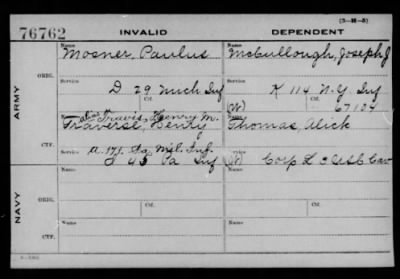 (3-H-5)
76762 INVALID DEPENDENT
Name Name
Mosner, Paulus McCullough, Joseph J
ORIG. Service Service
D 29 Mich Inf K 114 N.Y Inf
Ctf. Ctf.
ARMY
(W) 67104
alias Travis, Henry M.
Name
Traverse, Henry Thomas Alick
CTF. Service
A. 171. Pa. Mil. Inf
I 45 Pa Inf (W) Corp L Cav
NAVY
Name Name
ORIG.
Service Ctf. Service Ctf.
Name Name
CTF.
Service Service